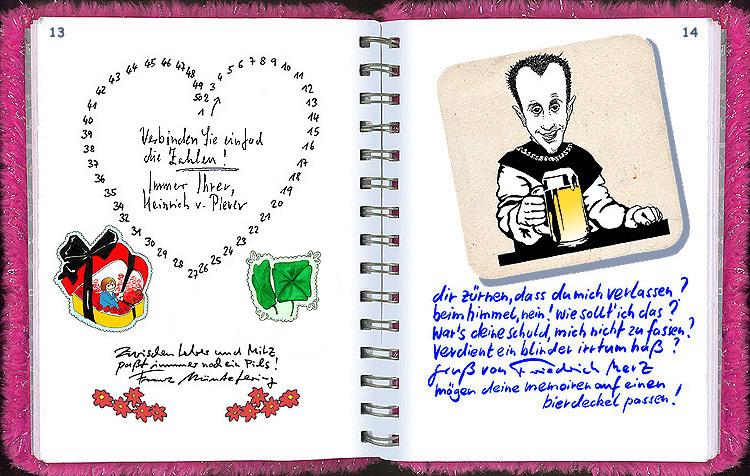 13
1 2 3 4 5 6 7 8 9 10 11 12 13 14 15 16 17 18 19 20 21 22 23 24 25 26 27 28 29 30 31 32 34 35 36 37 38 39 40 41 42 43 44 45 46 47 48 49 50
Verbinden Sie einfach
die Zahlen!
Immer Ihrer,
Heinrich v. Pierer
Zwischen Leber und Milz
paßt immer noch ein Pils!
Franz Müntefering
14
dir zürnen, dass du mich verlassen?
beim himmel, nein! wie sollt' ich das?
war's deine schuld, mich nicht zu fassen?
verdient ein blinder irrtum haß?
gruß von Friedrich Merz
mögen deine memoiren auf einen
bierdeckel passen!